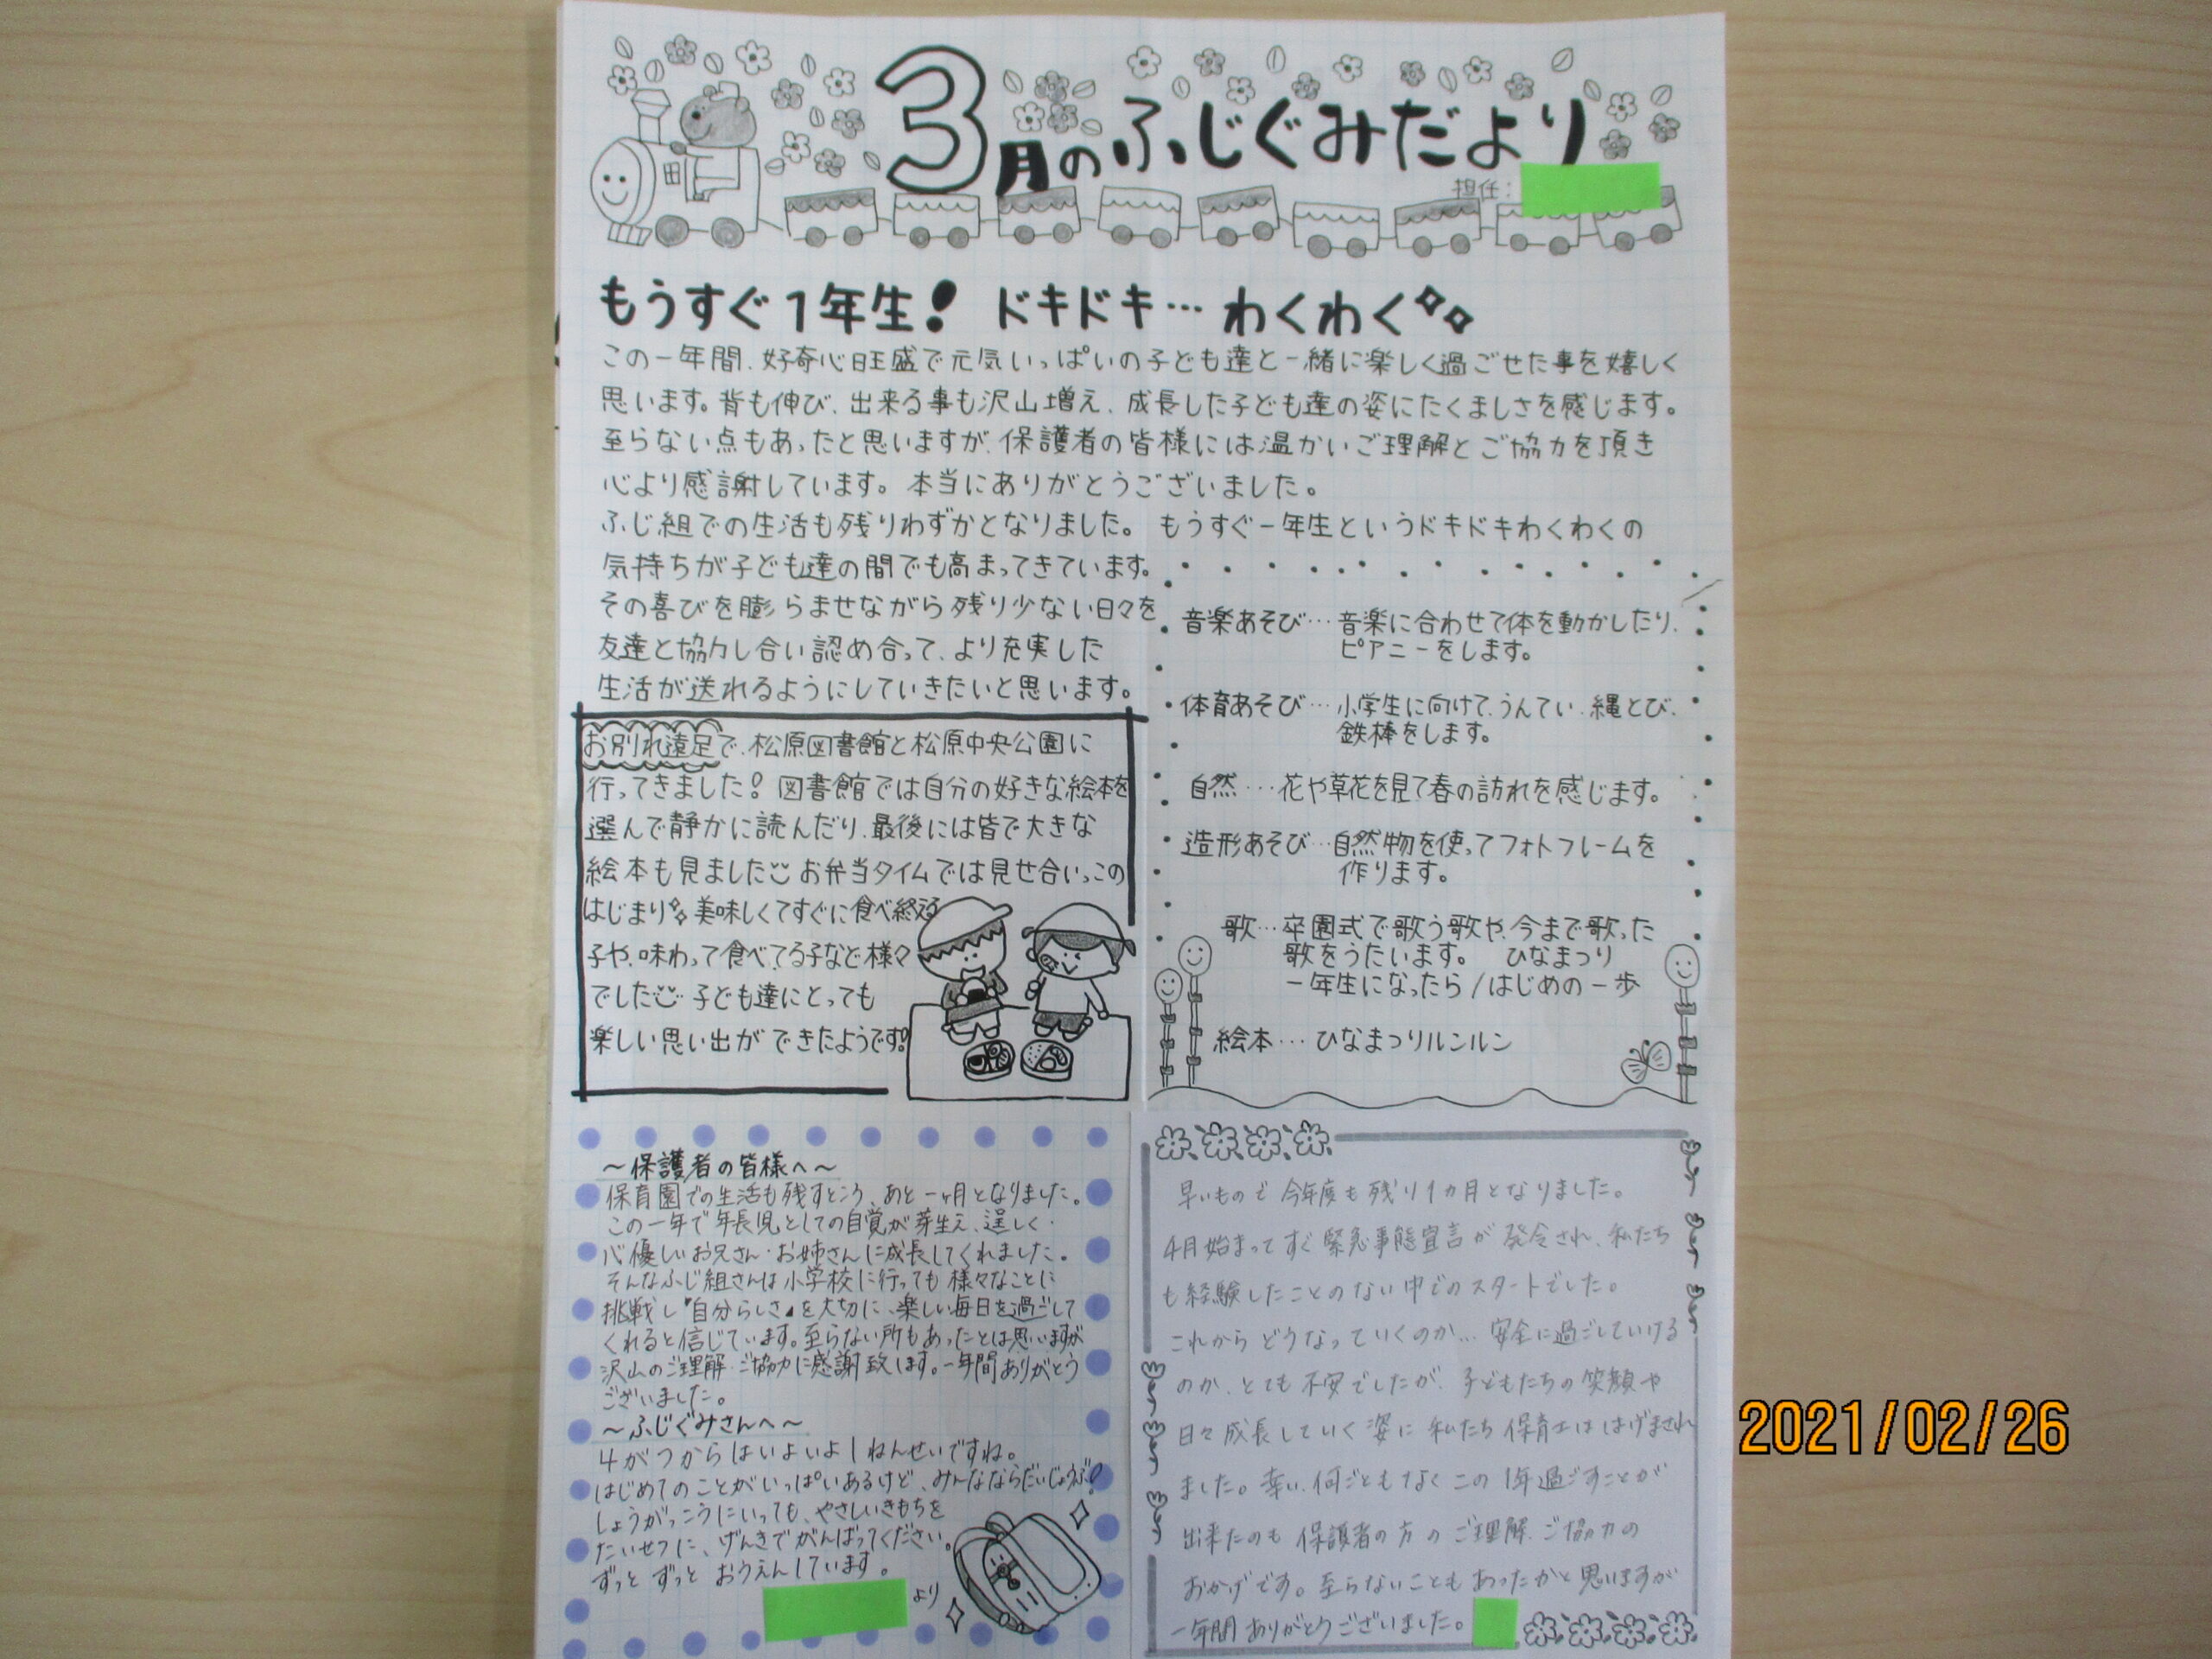 3月のふじぐみだより
担任:
もうすぐ1年生! ドキドキ… わくわく
この一年間、好奇心旺盛で元気いっぱいの子ども達と一緒に楽しく過ごせた事を嬉しく
思います。背も伸び、出来る事も沢山増え、成長した子ども達の姿にたくましさを感じます。
至らない点もあったと思いますが、保護者の皆様には温かいご理解とご協力を頂き
心より感謝しています。本当にありがとうございました。
ふじ組での生活も残りわずかとなりました。もうすぐ一年生というドキドキわくわくの
気持ちが子ども達の間でも高まってきています。
その喜びを膨らませながら残り少ない日々を
友達と協力し合い認め合って、より充実した
生活が送れるようにしていきたいと思います。
お別れ遠足で、松原図書館と松原中央公園に
行ってきました! 図書館では自分の好きな絵本を
選んで静かに読んだり、最後には皆で大きな
絵本も見ました お弁当タイムでは見せ合いっこの
はじまり 美味しくてすぐに食べ終える
子や、味わって食べてる子など様々
でした 子ども達にとっても
楽しい思い出ができたようです!
音楽あそび…音楽に合わせて体を動かしたり、
ピアニーをします。
体育あそび…小学生に向けて、うんてい、縄とび、
鉄棒をします。
自然…花や草花を見て春の訪れを感じます。
造形あそび…自然物を使ってフォトフレームを
作ります。
歌…卒園式で歌う歌や、今まで歌った
歌をうたいます。 ひなまつり
一年生になったら/はじめの一歩
絵本…ひなまつりルンルン
～保護者の皆様へ～
保育園での生活も残すところ、あと一ヶ月となりました。
この一年で年長児としての自覚が芽生え、逞しく・
心優しいお兄さん・お姉さんに成長してくれました。
そんなふじ組さんは小学校に行っても様々なことに
挑戦し『自分らしさ』を大切に、楽しい毎日を過ごして
くれると信じています。至らない所もあったとは思いますが
沢山のご理解・ご協力に感謝致します。一年間ありがとう
ございました。
～ふじぐみさんへ～
4がつからはいよいよ1ねんせいですね。
はじめてのことがいっぱいあるけど、みんなならだいじょうぶ!
しょうがっこうにいっても、やさしいきもちを
たいせつに、げんきでがんばってください。
ずっと ずっと おうえんしています。
より
早いもので 今年度も残り1カ月となりました。
4月始まってすぐ緊急事態宣言が発令され、私たち
も経験したことのない中でのスタートでした。
これからどうなっていくのか… 安全に過ごしていける
のか、とても不安でしたが、子どもたちの笑顔や
日々成長していく姿に私たち保育士ははげまされ
ました。幸い、何ごともなくこの1年過ごすことが
出来たのも保護者の方のご理解、ご協力の
おかげです。至らないこともあったかと思いますが
一年間ありがとうございました。
2021/02/26